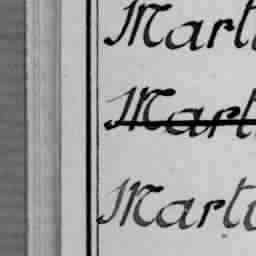 Marti
Marti
Marti